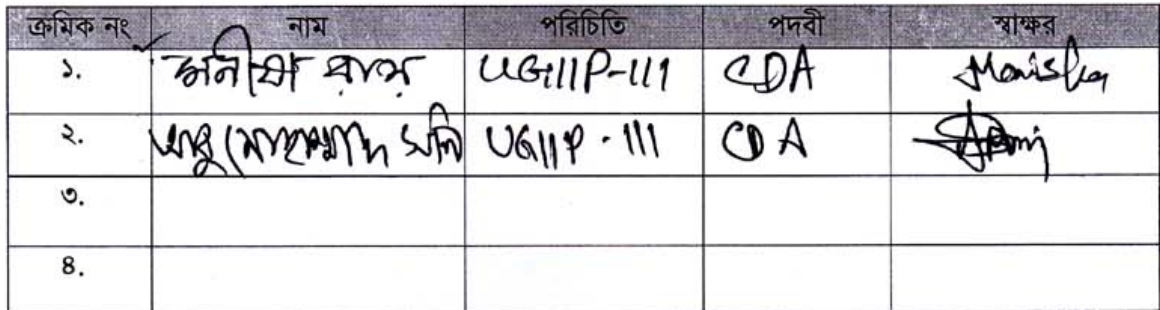 ক্রমিক নং নাম পরিচিতি পদবী স্বাক্ষর
১. মনীষা রায় UGIIP-III CDA Manisha
২. আবু মোহাম্মাদ UGIIP-III CDA
৩.
৪.